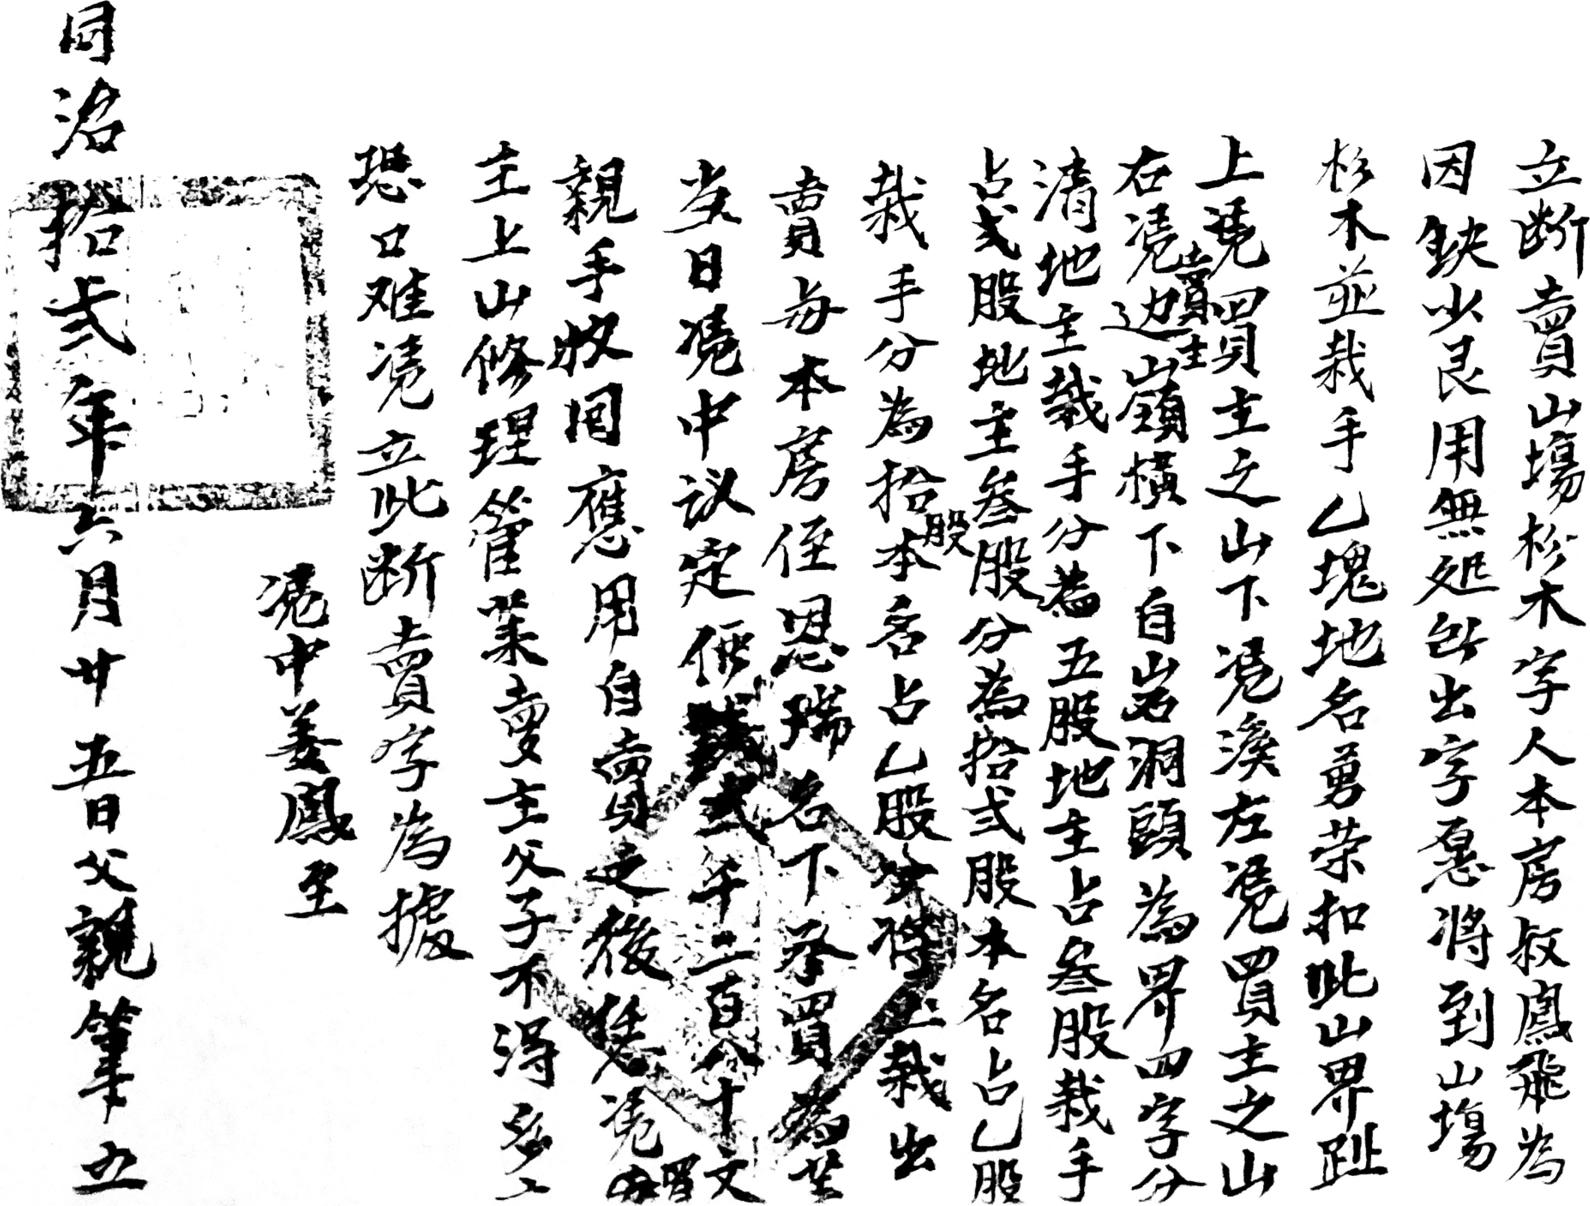 立断賣山塲杉木字人本房叔鳳飛為
因缺少艮用無処出字愿將到山塲
杉木並栽手乙塊地名勇荣扣此山界趾
上凴買主之山下凴溪左凴買主之山
右凴賣主边山嶺横下自岩洞頭為界四字分
清地主栽手分為五股地主占叁股栽手
占弍股地主叁股分為拾弍股本名占乙股
栽手分為拾股本名占乙股今將土栽出
賣与本房侄恩瑞名下承買為業
当日凴中议定價錢弍千二百八十文
親手收回應用自賣之後任凴買
主上山修理管業賣主父子不得多
恐口难凴立此断賣字為據
凴中姜鳳至
同治拾弍年六月廿五日父親筆立